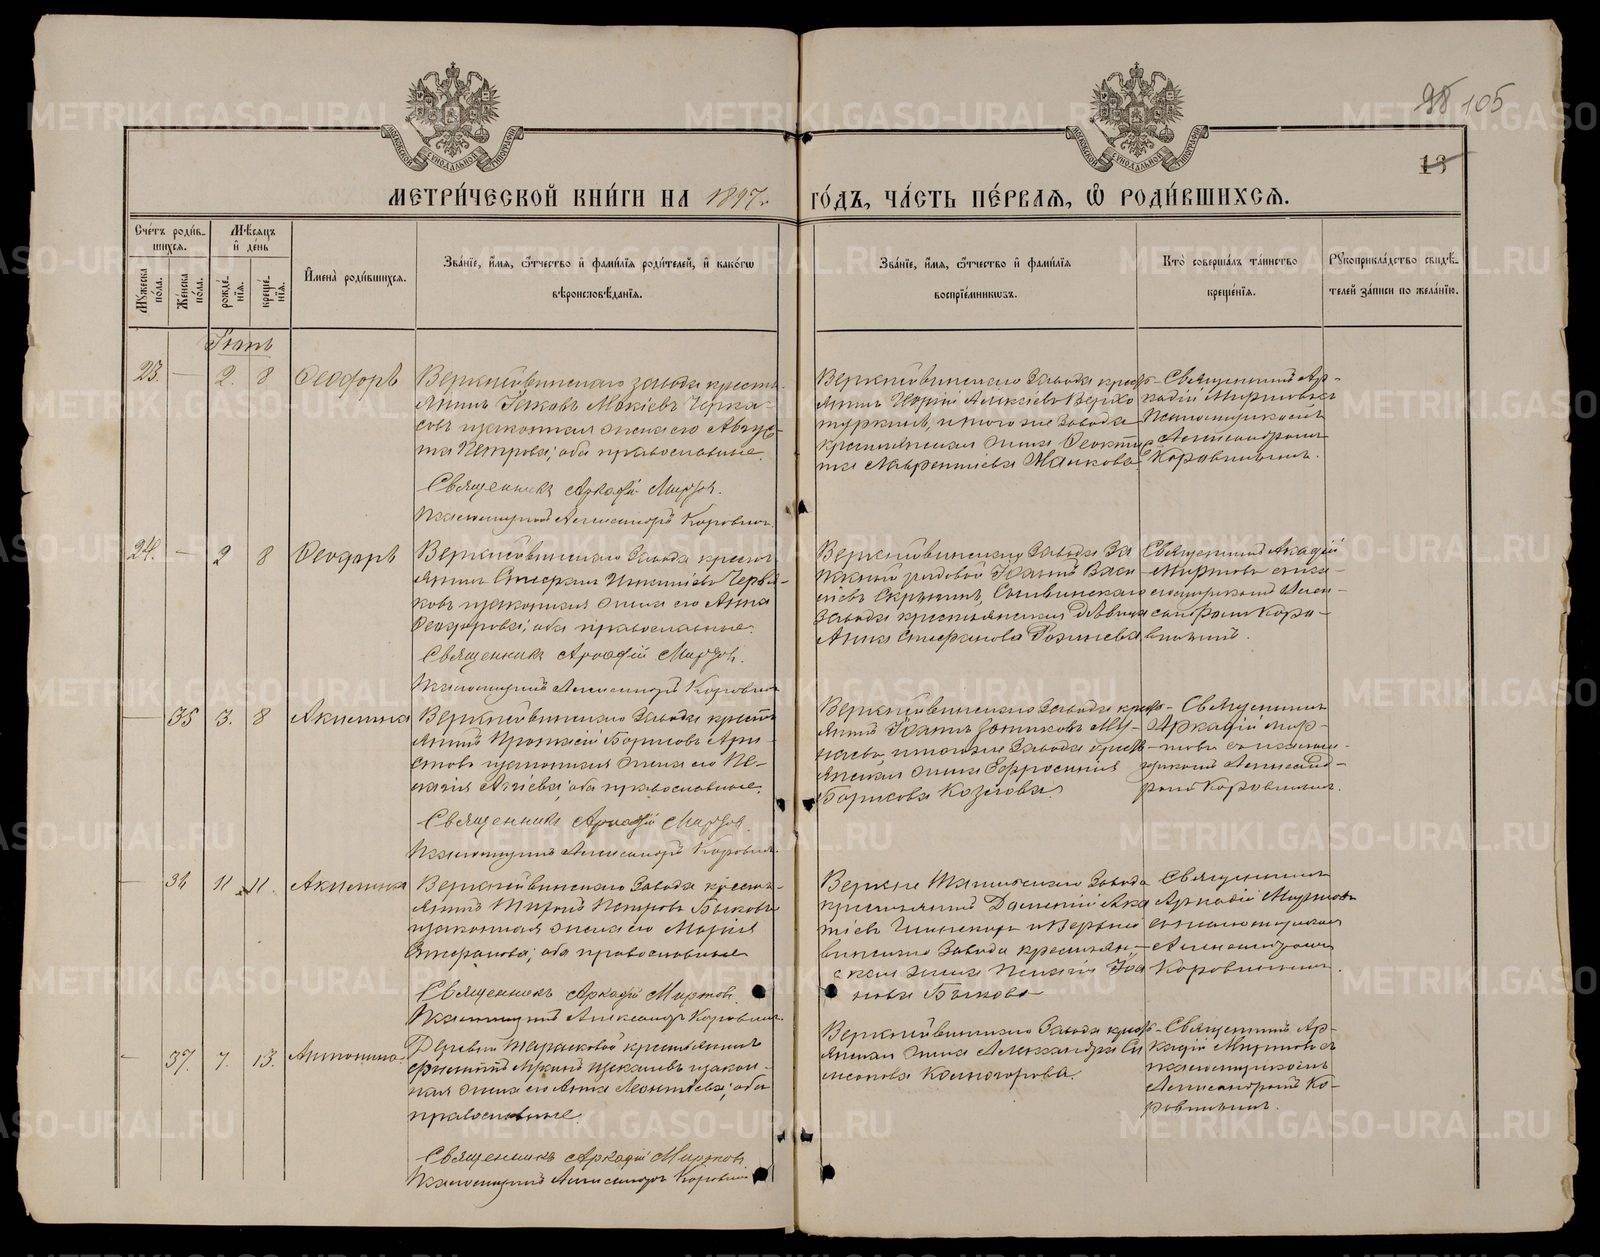 98 105
13
МЕТРИ́ЧЕСКОЙ КНИ́ГИ НА 1897 г.
ГО́ДЪ, ЧА́СТЬ ПЕ́РВАЯ, Ѡ҆ РОДИ́ВШИХСЯ.
Сче́тъ роди́в-
шихся.
Мꙋ́жеска
по́ла.
Же́нска
по́ла.
Мѣ́сяцъ
и҆ де́нь
рожде́-
нїя.
креще́-
нїя.
И҆мена̀ роди́вшихся.
Зва́нїе, и҆́мя, ѻ҆́тчество и҆ фами́лїя роди́телей, и҆ како́гѡ
вѣроисповѣ́данїя.
Зва́нїе, и҆́мя, ѻ҆́тчество и҆ фами́лїя
воспрїе́мникѡвъ.
Кто̀ соверша́лъ та́инство
креще́нїя.
Рꙋкоприкла́дство свидѣ́-
телей за́писи по жела́нїю.
Іюнь
23. — 2. 8 Ѳеодоръ
Верхнейвинскаго завода кресть-
янинъ Іаковъ Мокіевъ Черка-
совъ и законная жена его Авгус-
та Петрова; оба православные.
Священникъ Аркадій Миртовъ.
Псаломщикъ Александръ Коровинъ.
Верхнейвинскаго Завода крест-
янинъ Алексіевъ Верхо
туркинъ, и того же Завода
крестьянская жена Ѳеокти
ста Лаврентіева Малкова
Священникъ Ар-
кадій Миртовъ съ
Псаломщикомъ
Александромъ
Коровинымъ.
24. — 2 8 Ѳеодоръ
Верхнейвинскаго Завода кресть
янинъ Стефанъ Червя-
ковъ и законная жена его Анна
Ѳеодорова; оба православные.
Священникъ Аркадій Миртовъ.
Псаломщикъ Александръ Коровинъ
Верхнейвинскаго Завода За
пасный рядовой Іоаннъ Васи
ліевъ Скрыпинъ,
Завода крестьянская дѣвица
Анна Стефанова
Священникъ Акадій
Миртовъ съ пса-
ломщикомъ Алек-
сандромъ Коро-
винымъ.
— 35 3. 8 Акилина
Верхнейвинскаго Завода кресть
янинъ Борисовъ Ари-
стовъ и законная жена его Пе-
лагія оба православные.
Священникъ Аркадій Миртовъ.
Псаломщикъ Александръ Коровинъ.
Верхнейвинскаго Завода крест-
янинъ Іоаннъ
и того же Завода крест-
янская жена Евфросинія
Борисова Козлова.
Священникъ
Аркадій Мир-
товъ съ псалом-
щикомъ Александ-
ромъ Коровинымъ.
— 36 11 11. Акилина
Верхнейвинскаго Завода кресть-
янинъ Петровъ Быковъ
и законная жена его Марія
Стефанова; оба православные
Священникъ Аркадій Миртовъ.
Псаломщикъ Александръ Коровинъ.
Завода
крестьянинъ
и Верхней
винскаго Завода крестьян-
ская жена Пелагія Іоа
нова Быкова
Священникъ
Аркадій Миртовъ
съ псаломщикомъ
Александромъ
Коровинымъ.
— 37. 7. 13. Антонина
Деревни Таралковой крестьянинъ
и закон-
ная жена его Анна Леонтіева; оба
православные.
Священникъ Аркадій Миртовъ
Псаломщикъ Александръ Коровинъ
Верхнейвинскаго Завода крест-
янская жена Александра Си
меонова Колногорова.
Священникъ Ар-
кадій Миртовъ съ
псаломщикомъ
Александромъ Ко-
ровинымъ.
METRIKI.GASO-URAL.RU